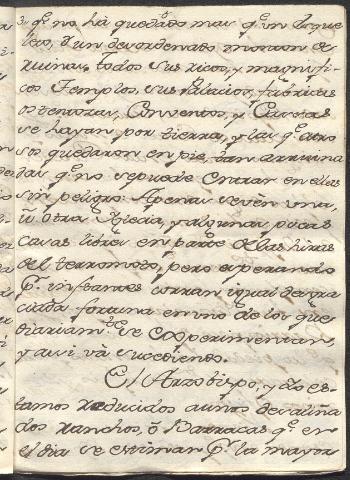 3, q.e no hà quedado mas q.e un esque
leto, ô un desordenado monton de
ruinas, todos sus ricos, y magnifi-
cos Templos, sus Palacios, fabricas
ostentosas, Conventos, y Causas
se hayan por tierra, y las q.e
quedaron en pie, tan arruina
das q.e no se puede entrar en ellas
sin peligro: Apenas se ven una,
û otra Yglesia, y algunas pocas
casas libres en parte de las hiras
del terremoto, pero esperando
p.r instantes corran igual desgra
ciada fortuna en uno de los que
diariam.te se experimentan,
y assi và sucediendo.
El Arzobispo, y yo es-
tamos reducidos a unos
dos ranchos, ô Barracas q.e en
el dia se estiman p.r la mayor